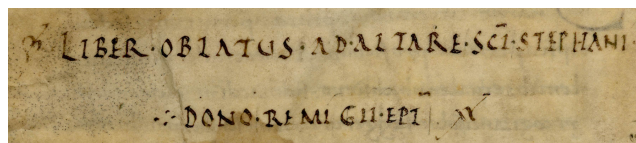 LIBER·OBLATUS·AD·ALTARE·SCI·STEPHANI·
DONO·REMIGII·EPI